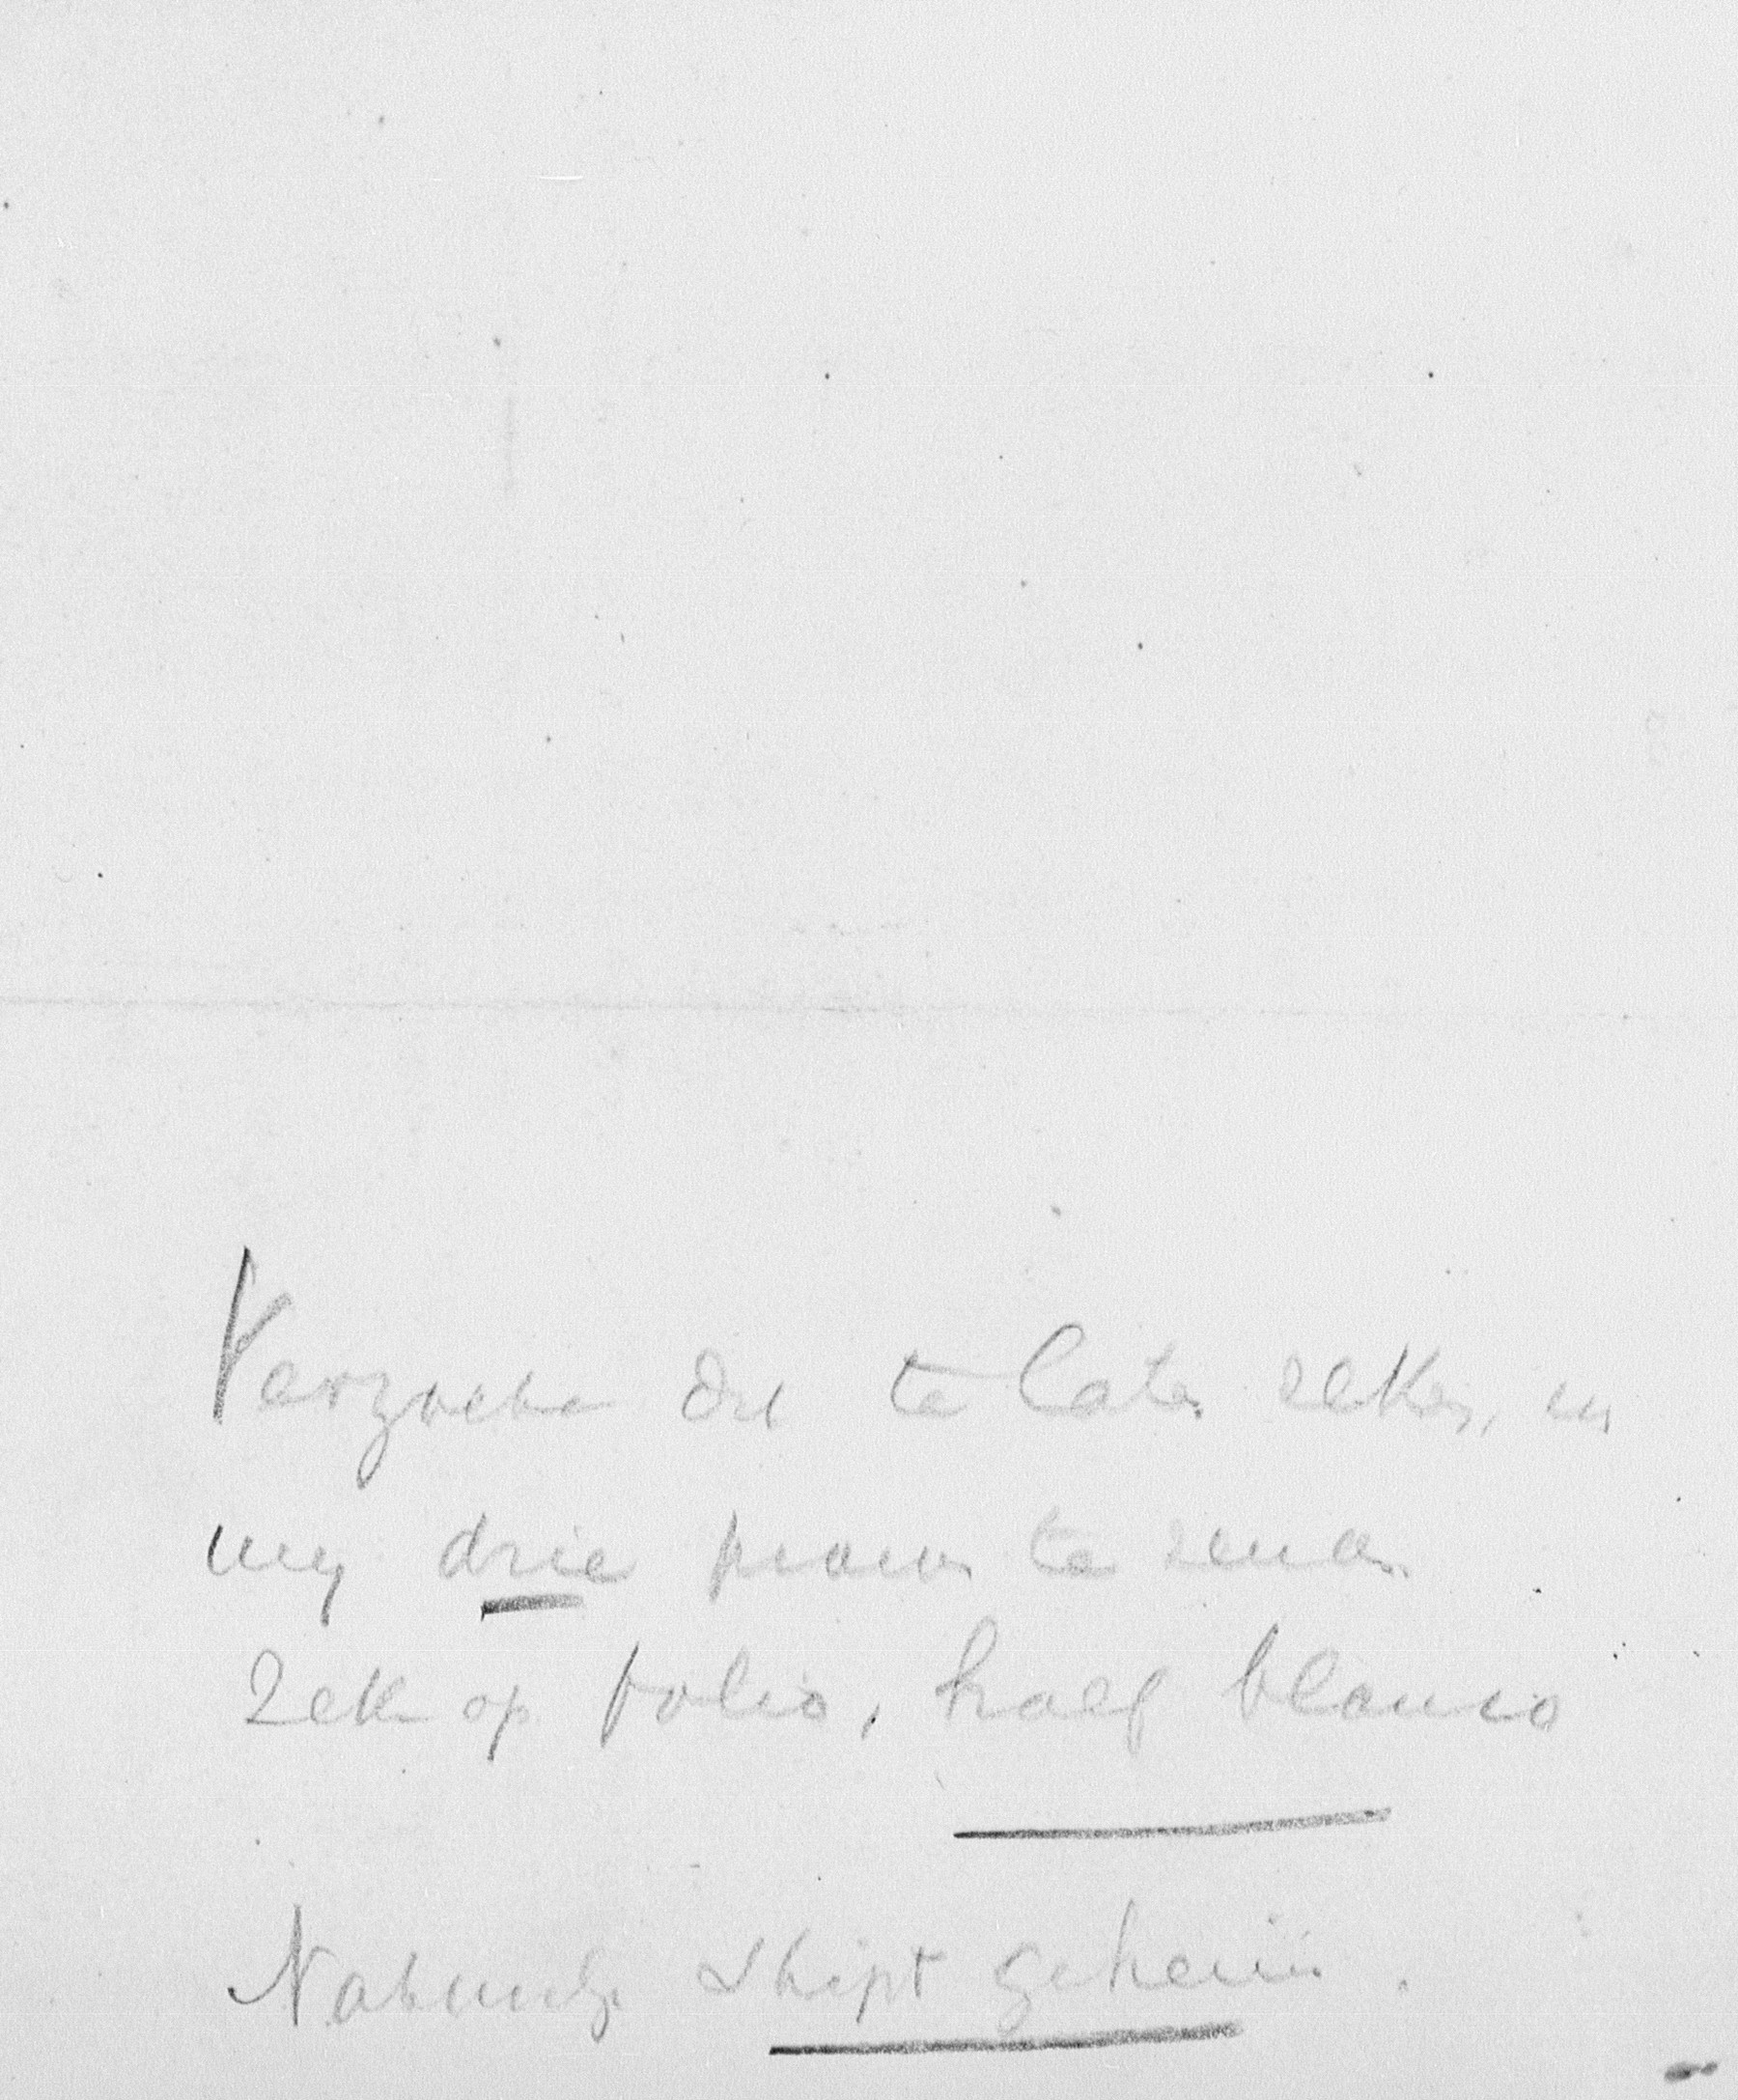 Verzoeke dit te laten zetten, en
mij drie proeven te zenden.
Zetten op folio, half blanco
Natuurlijk stipt geheim.